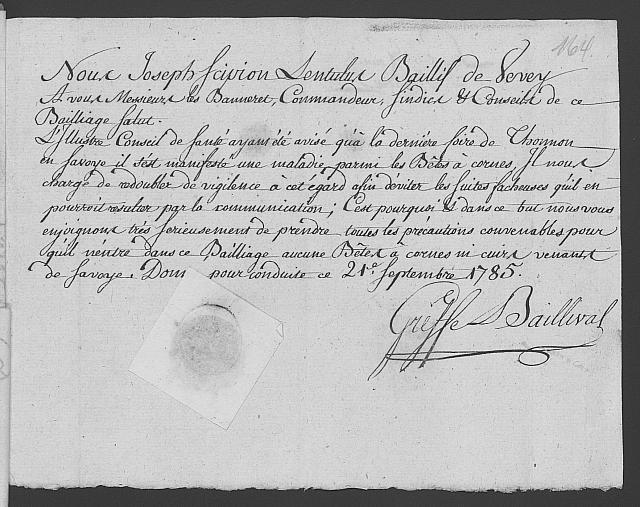 164.
Nous Joseph Scipion Lentulus Baillif de Vevey
A vous Messieurs les Banneret, Commandeur, Sindics & Conseils de ce
Bailliage salut.
L'Illustre Conseil de santé ayant été avisé qu'à la dernière foire de Thonnon
en Savoye il s'est manifesté une maladie parmi les Bêtes à cornes, Il nous
charge de redoubler de vigilence à cet égard afin d'éviter les suites facheuses qu'il en
pourroit resulter par la communication; C'est pourquoi & dans ce but nous vous
enjoignons très serieusement de prendre toutes les précautions convenables pour
qu'il n'entre dans ce Bailliage aucune Bêtes à cornes ni cuirs venants
de Savoye. Dont pour conduite ce 21.e Septembre 1785.
Greffe Baillival